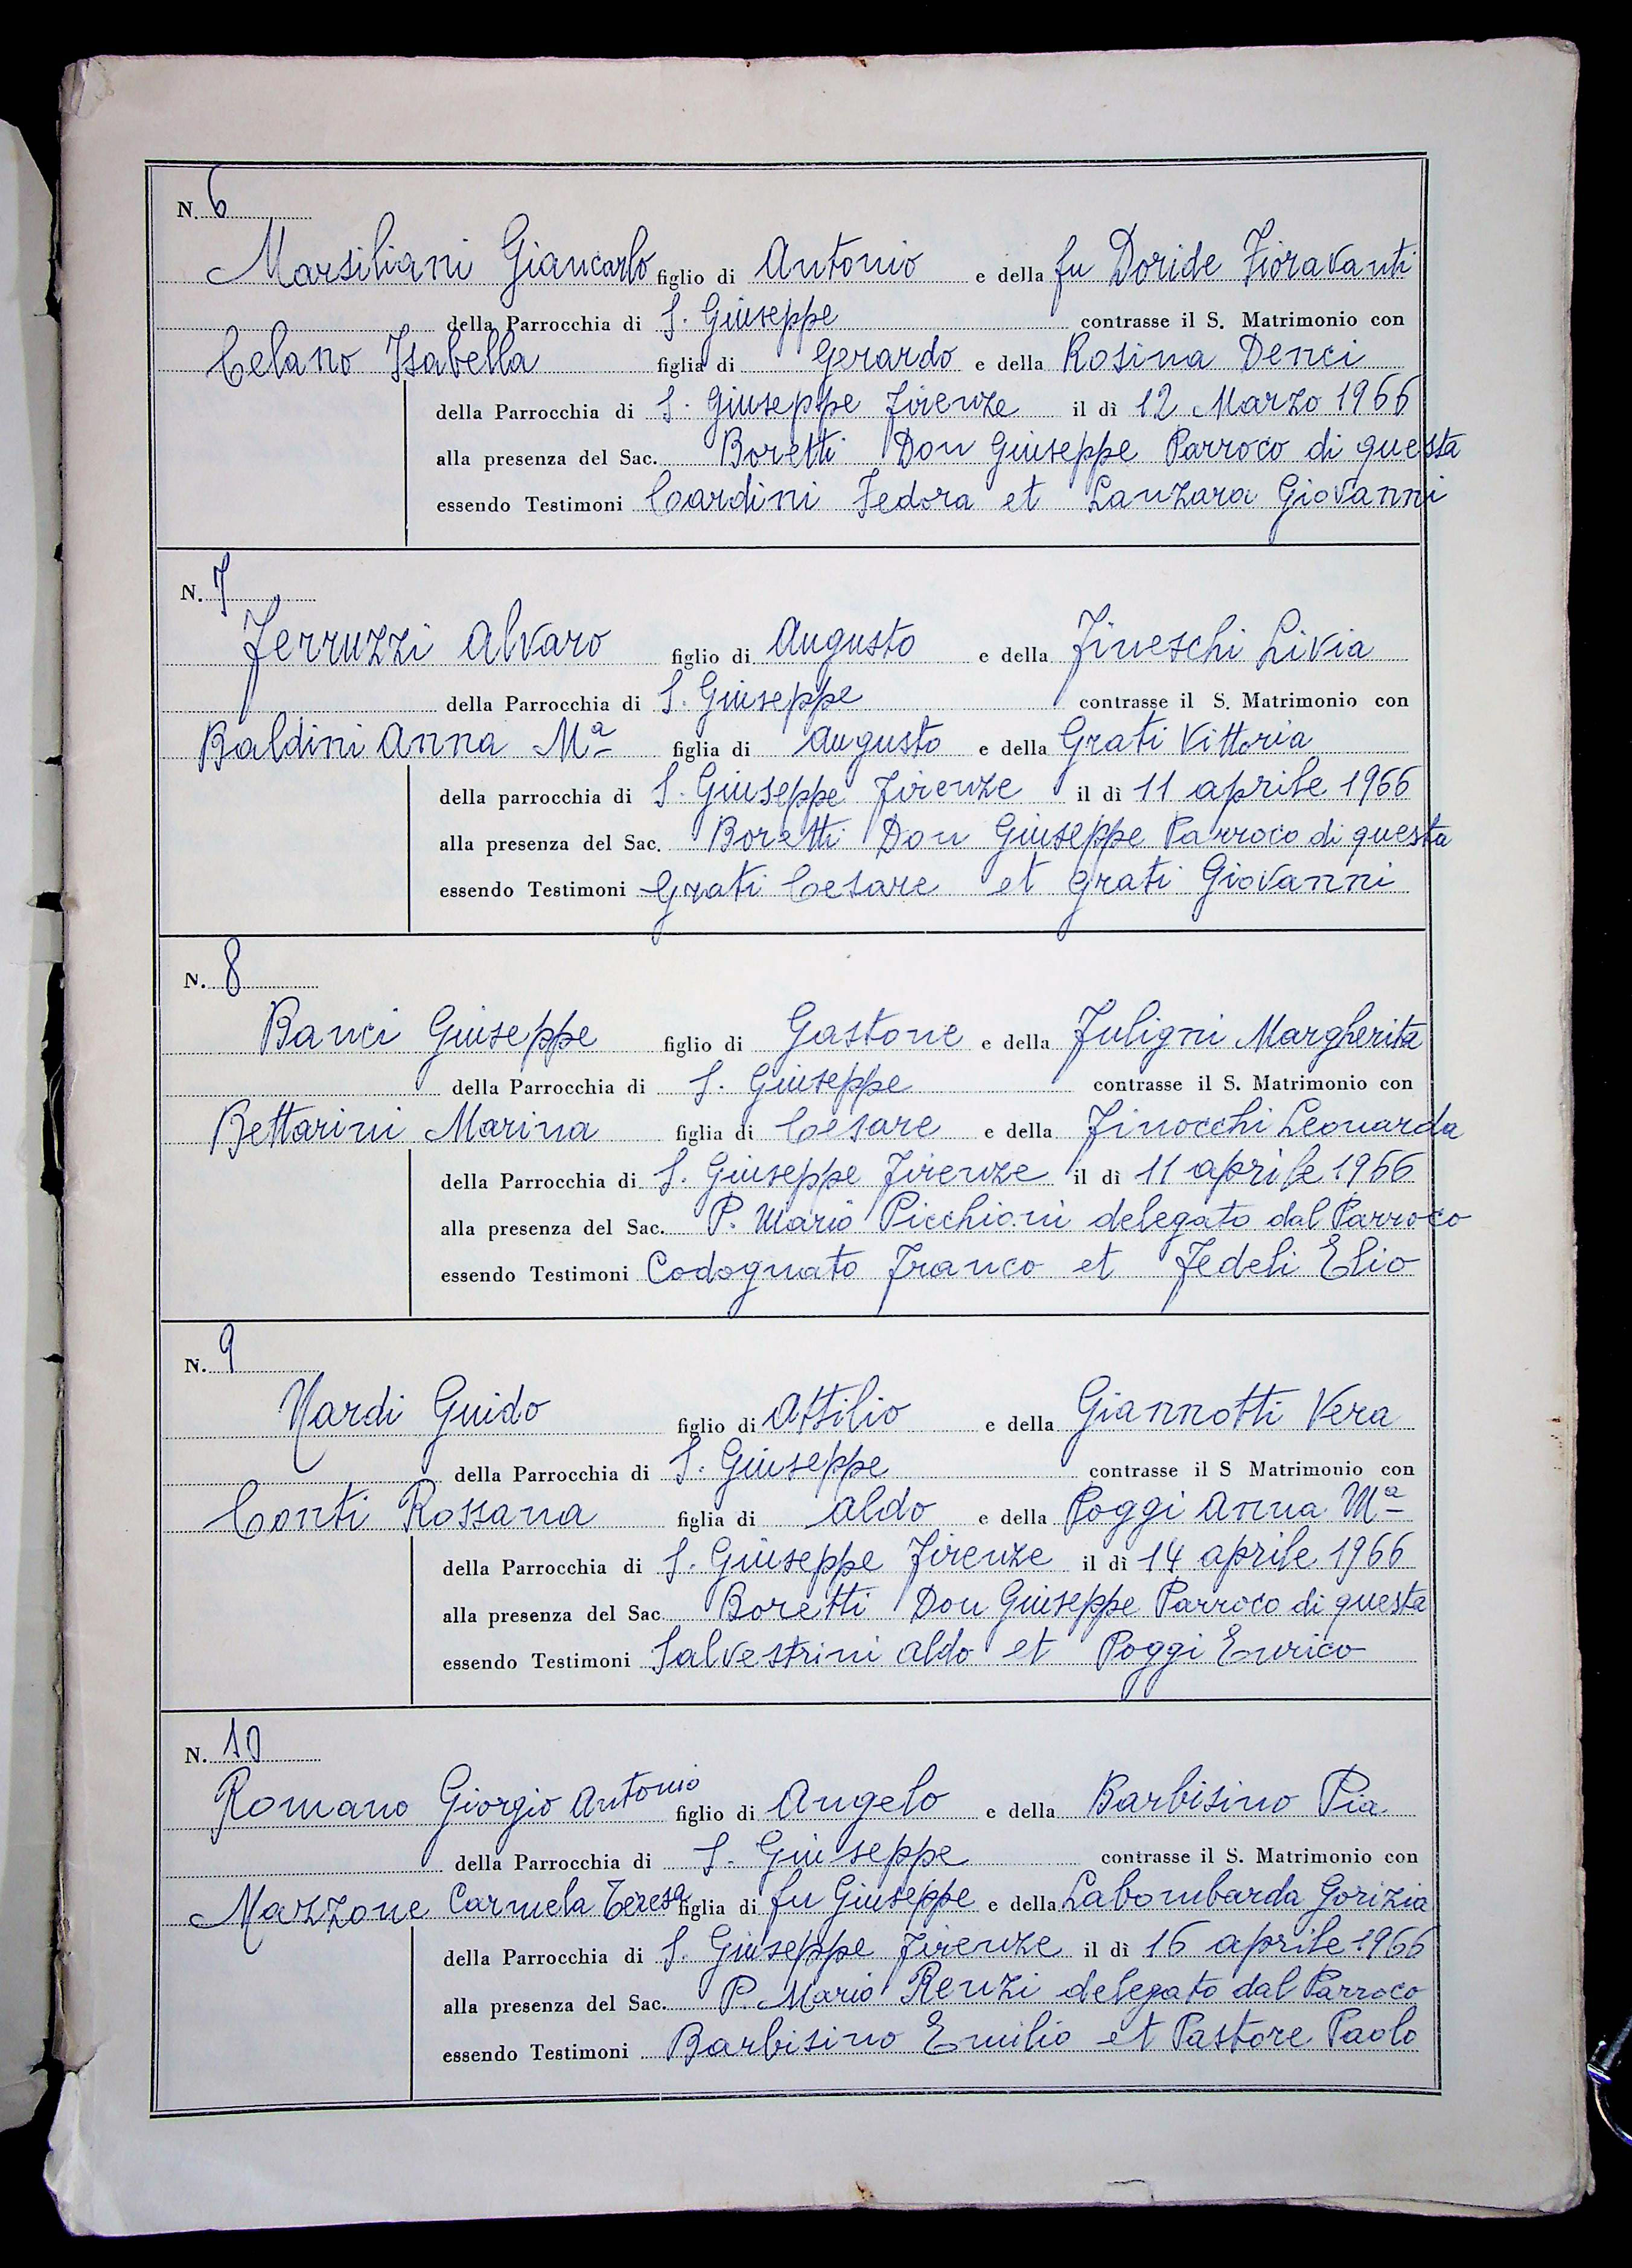 N. 6
Marsiliani Giancarlo figlio di Antonio e della fu Doride Fioravanti
della Parrocchia di S. Giuseppe contrasse il S. Matrimonio con
Celano Isabella figlia di Gerardo e della Rosina Denci
della Parrocchia di S. Giuseppe Firenze il dì 12 Marzo 1966
alla presenza del Sac. Boretti Don Giuseppe Parroco di questa
essendo Testimoni Cardini Fedora et Lanzara Giovanni
N. 7
Ferruzzi Alvaro figlio di Augusto e della Fineschi Livia
della Parrocchia di S. Giuseppe contrasse il S. Matrimonio con
Baldini Anna Mª figlia di Augusto e della Grati Vittoria
della parrocchia di S. Giuseppe Firenze il dì 11 aprile 1966
alla presenza del Sac. Boretti Don Giuseppe Parroco di questa
essendo Testimoni Grati Cesare et Grati Giovanni
N. 8
Banci Giuseppe figlio di Gastone e della Fuligni Margherita
della Parrocchia di S. Giuseppe contrasse il S. Matrimonio con
Bettarini Marina figlia di Cesare e della Finocchi Leonarda
della Parrocchia di S. Giuseppe Firenze il dì 11 aprile 1966
alla presenza del Sac. P. Mario Picchioni delegato dal Parroco
essendo Testimoni Codognato Franco et Fedeli Elio
N. 9
Nardi Guido figlio di Attilio e della Giannotti Vera
della Parrocchia di S. Giuseppe contrasse il S Matrimonio con
Conti Rossana figlia di Aldo e della Poggi Anna Mª
della Parrocchia di S. Giuseppe Firenze il dì 14 aprile 1966
alla presenza del Sac. Boretti Don Giuseppe Parroco di questa
essendo Testimoni Salvestrini Aldo et Poggi Enrico
N. 10
Romano Giorgio Antonio figlio di Angelo e della Barbisino Pia
della Parrocchia di S. Giuseppe contrasse il S. Matrimonio con
Mazzone Carmela Teresa figlia di fu Giuseppe e della Labombarda Gorizia
della Parrocchia di S. Giuseppe Firenze il dì 16 aprile 1966
alla presenza del Sac. P. Mario Renzi delegato dal Parroco
essendo Testimoni Barbisino Emilio et Pastore Paolo